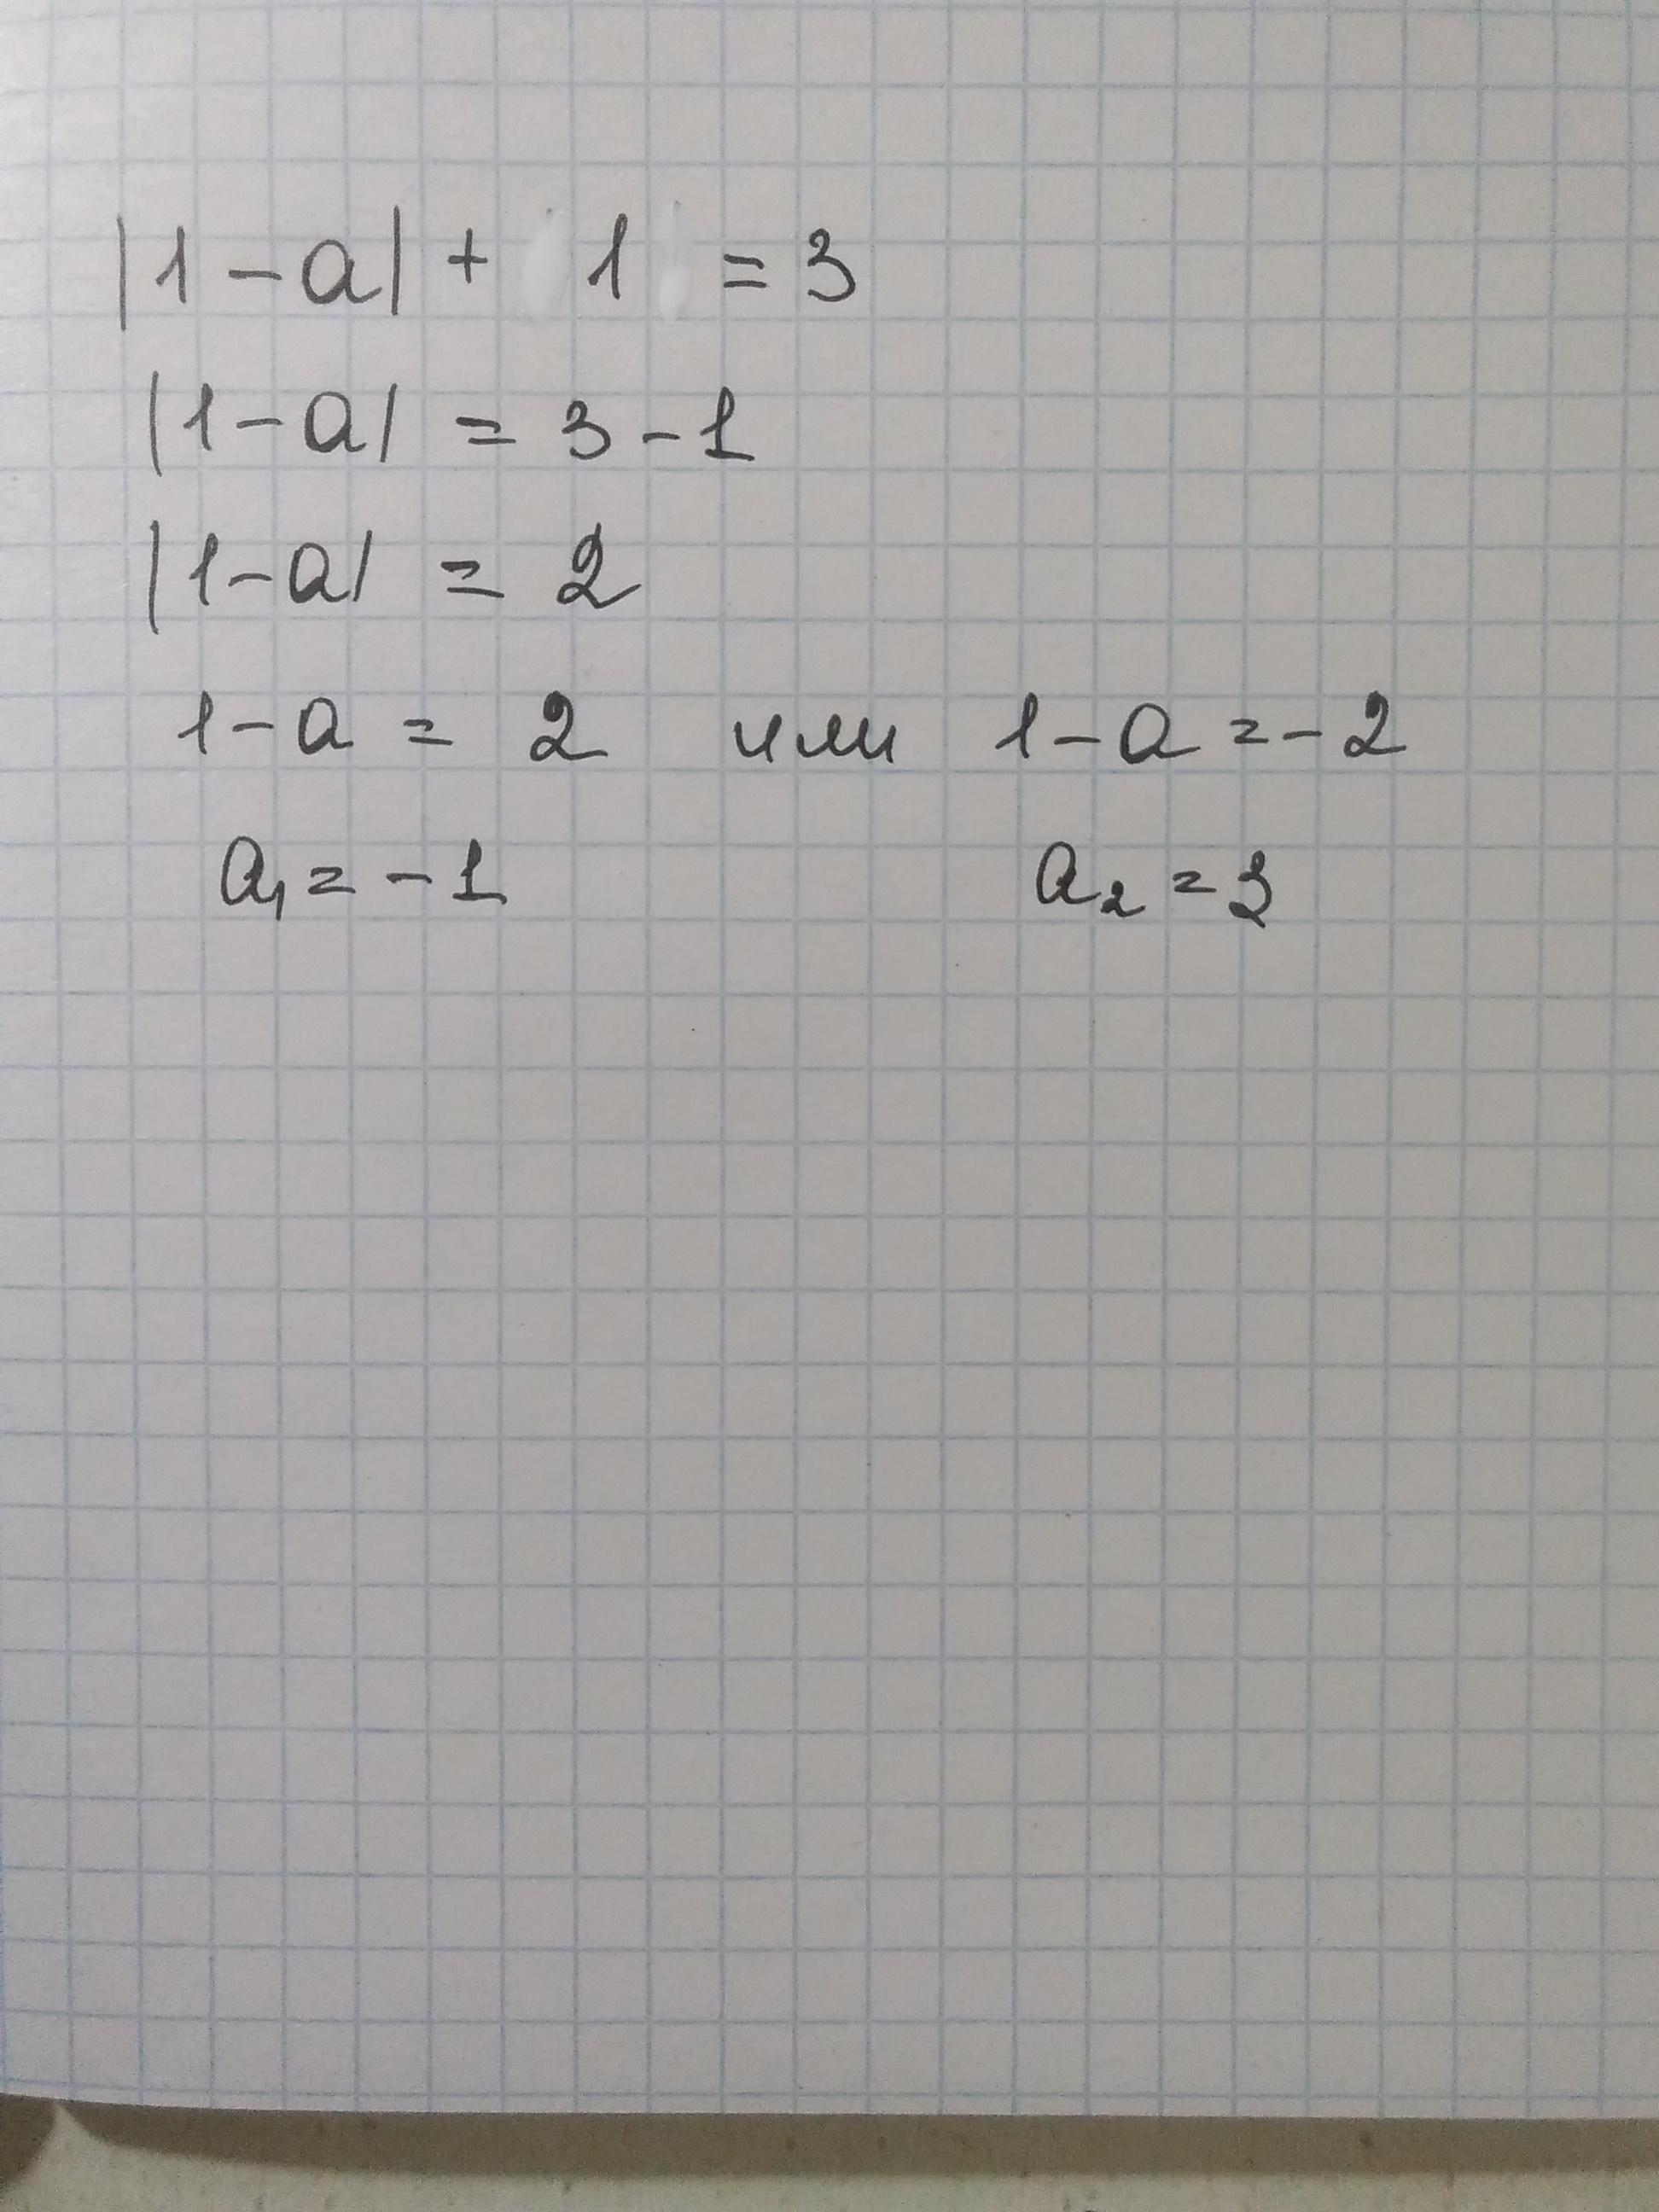 |1-a| + 1 = 3
|1-a| = 3-1
|1-a| = 2
1-a = 2 или 1-a = -2
a₁ = -1 a₂ = 3